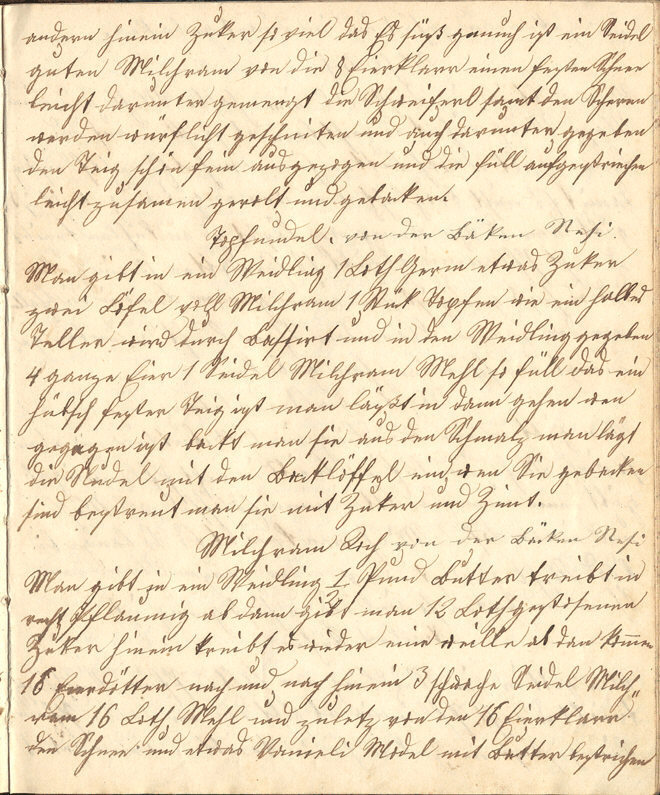 andern hinein Zuker so viel das Es süß genuch ist ein Seidel
guten Milchram von die 8 Eierklarr einen festen Schnee
leicht darunter gemengt die Schweiferl samt den Scheren
werden würflicht geschniten und auch darunter gegeben
den Teig schön fein ausgezogen und die füll aufgestriechen
leicht zusamen gerolt und gebacken.
Topfnudel. von der Bäken Resi.
Man gibt in ein Weidling 1 Loth Germ etwas Zuker
zwei Löfel voll Milchram 1 Stük Topfen wie ein halbes
Teller wird durch Bassirt und in den Weidling gegeben
4 ganze Eier 1 Seidel Milchram Mehl so füll das ein
hübsch fester Teig ist man läßt in dann gehen wen
gegagen ist backt man sie aus den Schmalz man lägt
die Nudel mit den Backlöffel ein, wen Sie gebacken
sind bestreut man sie mit Zuker und Zimt.
Milchram Koch von der Bäcken Resi
Man gibt in ein Weidling 1/2 Pund Butter treibt in
recht Pflaumig ab dann gibt man 12 Loth gestosenen
Zuker hinein treibt es wieder eine weille als dan kommen
16 Eierdötter nach und nach hinein 3 schwache Seidel Milch„
ram 16 Loth Mehl und zuletz von den 16 Eierklarr
den Schnee und etwas Vanieli Model mit Butter bestrichen